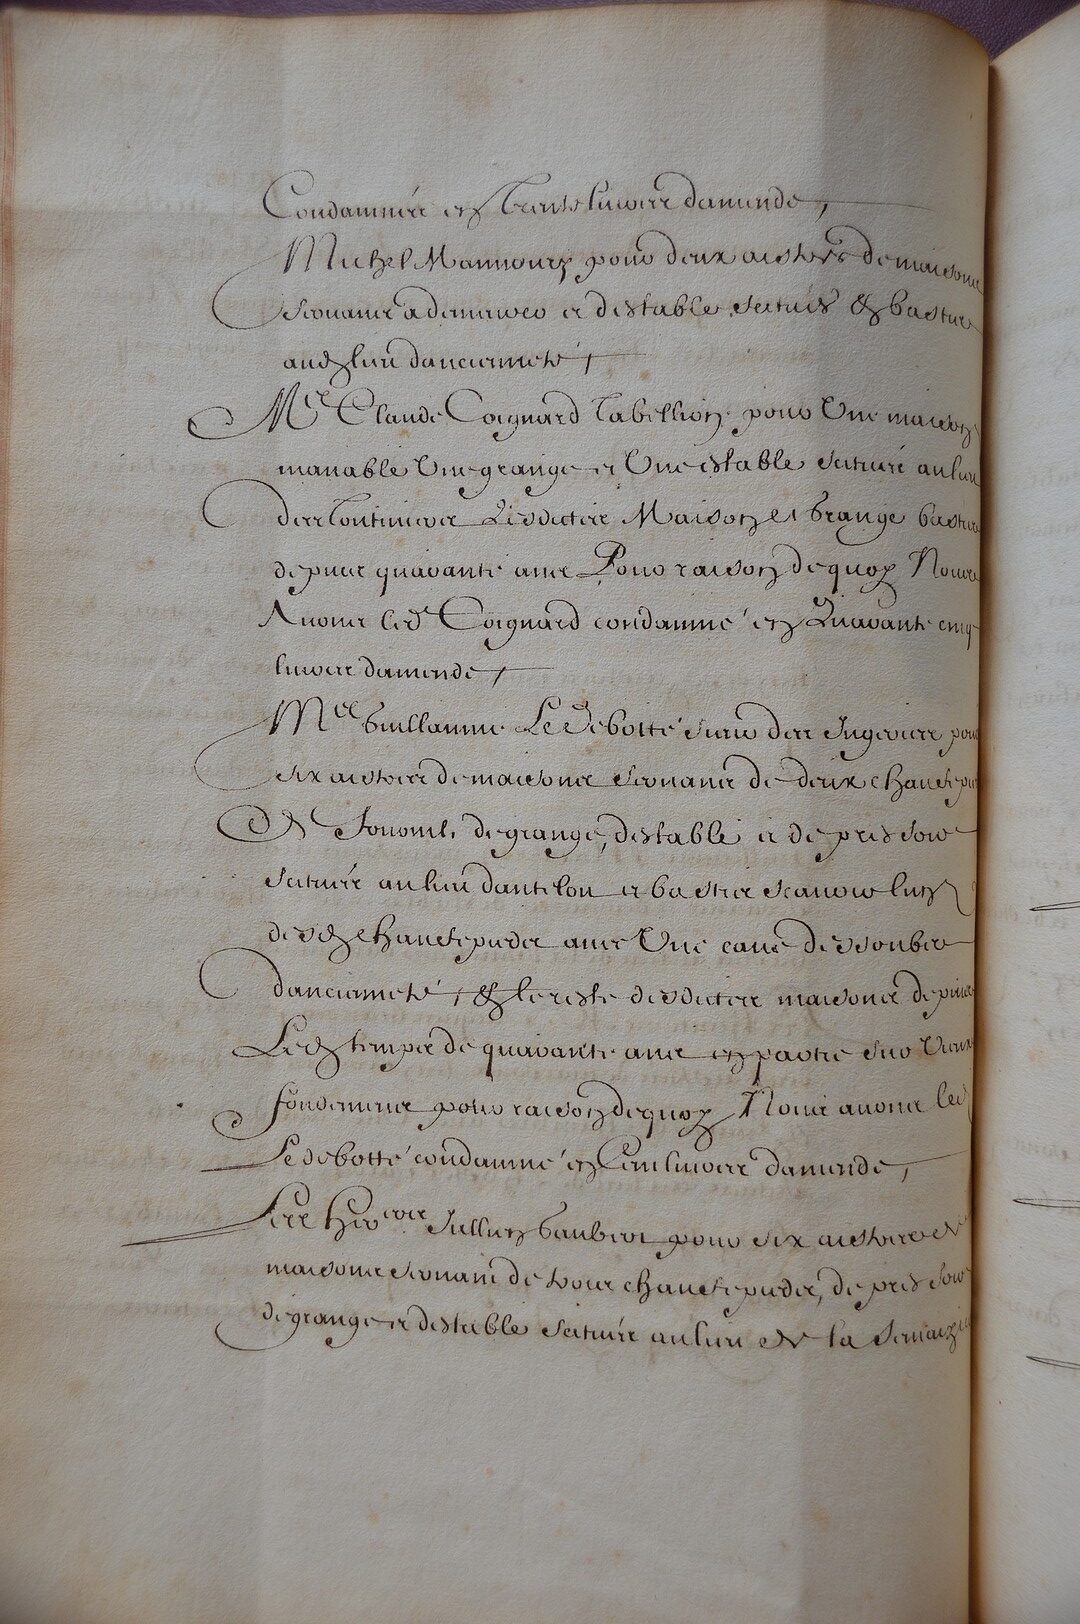 Condamnéz en Trente livres damende,
Michel Mannoury pour deux aistres de maisons
servans a demeurer et destable scitués & bastus
aud lieu dancienneté,
Me Claude Coignard Tabellion pour Une maison
manable Une grange et Une estable scituéz au lieu
des Lesdictes Maison et Grange bastus
depuis quarante ans Pour raison de quoy Nous
Avons led Coignard condamné en Quarante cinq
livres damende,
Me Guillaume Le Desbotté sieur des pour
six aistres de maisons servans de deux chaufepied
Et de grange, destable et de pressoir
scituéz au lieu dantelon et bastis scavoir lun
desd chaufepiedz avec Une cave dessoubz
dancienneté, & le reste desdictes maisons depuis
Led temps de quarante ans en partie sur Vieux
fondemens pour raison de quoy Nous avons led
Desbotté condamné en Cent livres damende,
Les Hers Jullien Gaubert pour six aistres de
maisons servans de trois chaufepiedz, de pressoir
de grange et destable scituéz au lieu de la